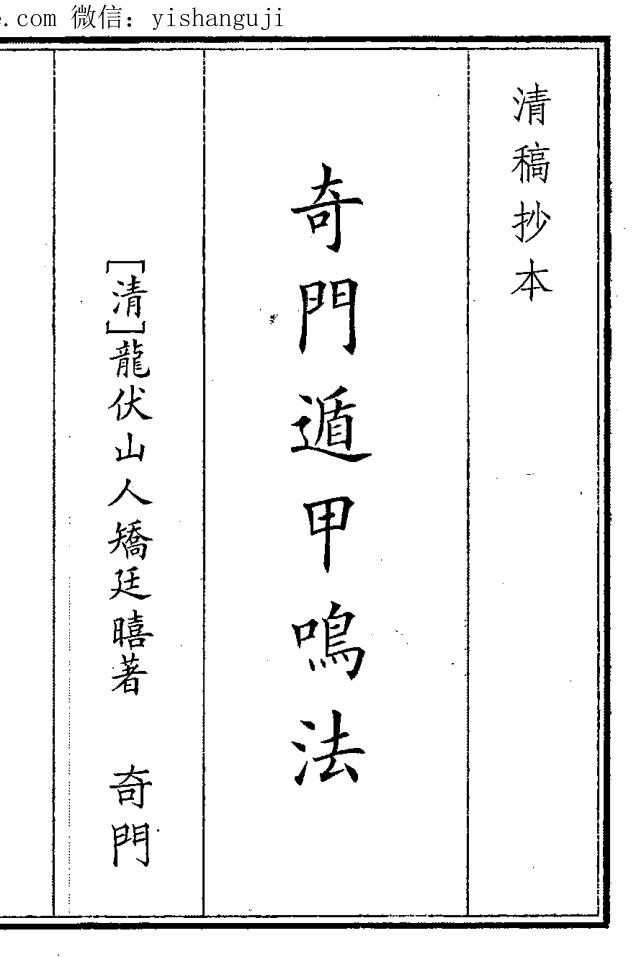 e.com 微信：yishanguji
清稿抄本
奇門遁甲鳴法
[清]龍伏山人矯廷曦著 奇門